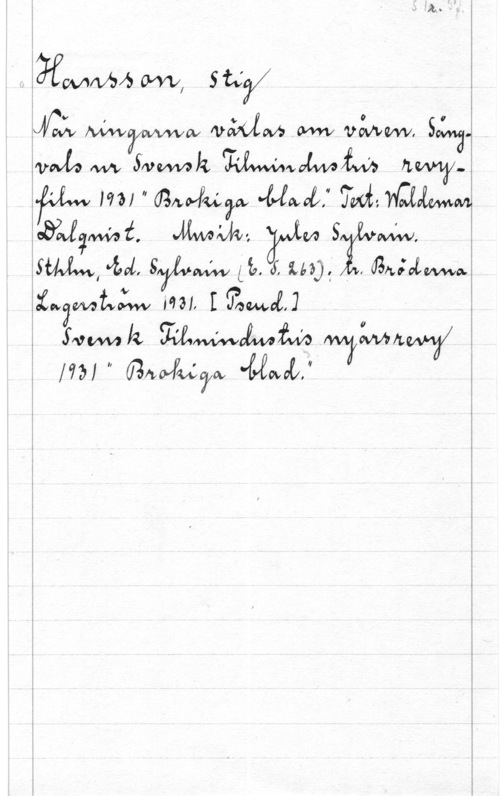 Hansson, Stig
När ringarna växlas om våren. Sång-
vals ur Svensk Filmindustris revy-
film 1931 "Brokiga blad." Text: Waldemar
Dalquist. Musik: Jules Sylvain.
Sthlm, Ed. Sylvain (E. S. 263); tr. Bröderna
Lagerström 1931. [Pseud.]
Svensk Filmindustris nyårsrevy
1931 "Brokiga blad."